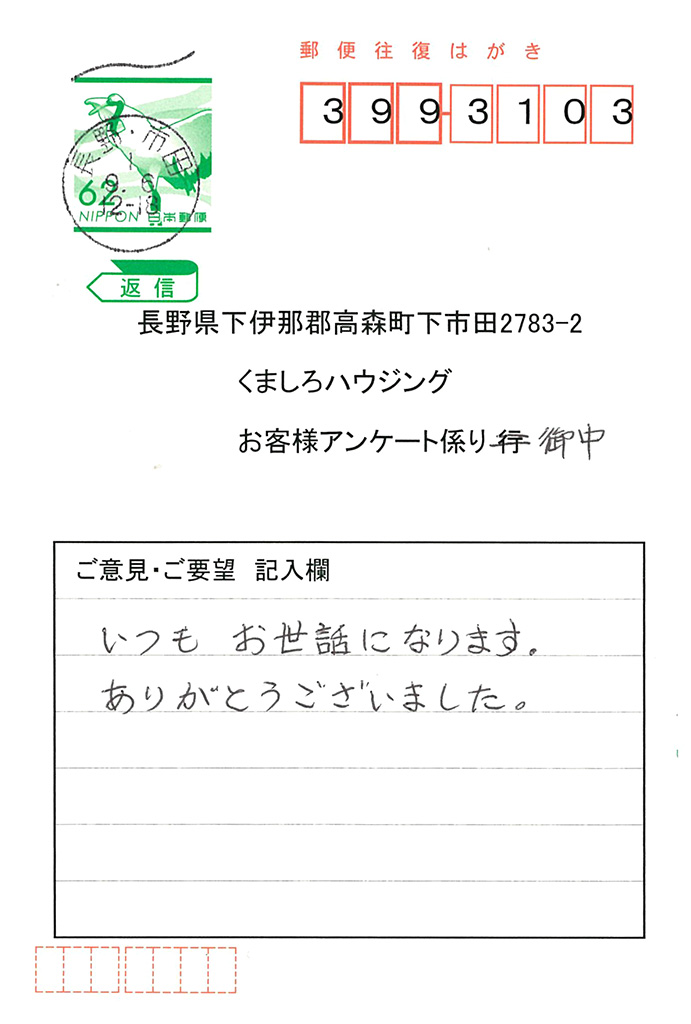 郵便往復はがき
399-3103
長野・市田
1
9. 6
12-18
62
NIPPON 日本郵便
返信
長野県下伊那郡高森町下市田2783-2
くましろハウジング
お客様アンケート係り行 御中
ご意見・ご要望 記入欄
いつも お世話になります。
ありがとうございました。